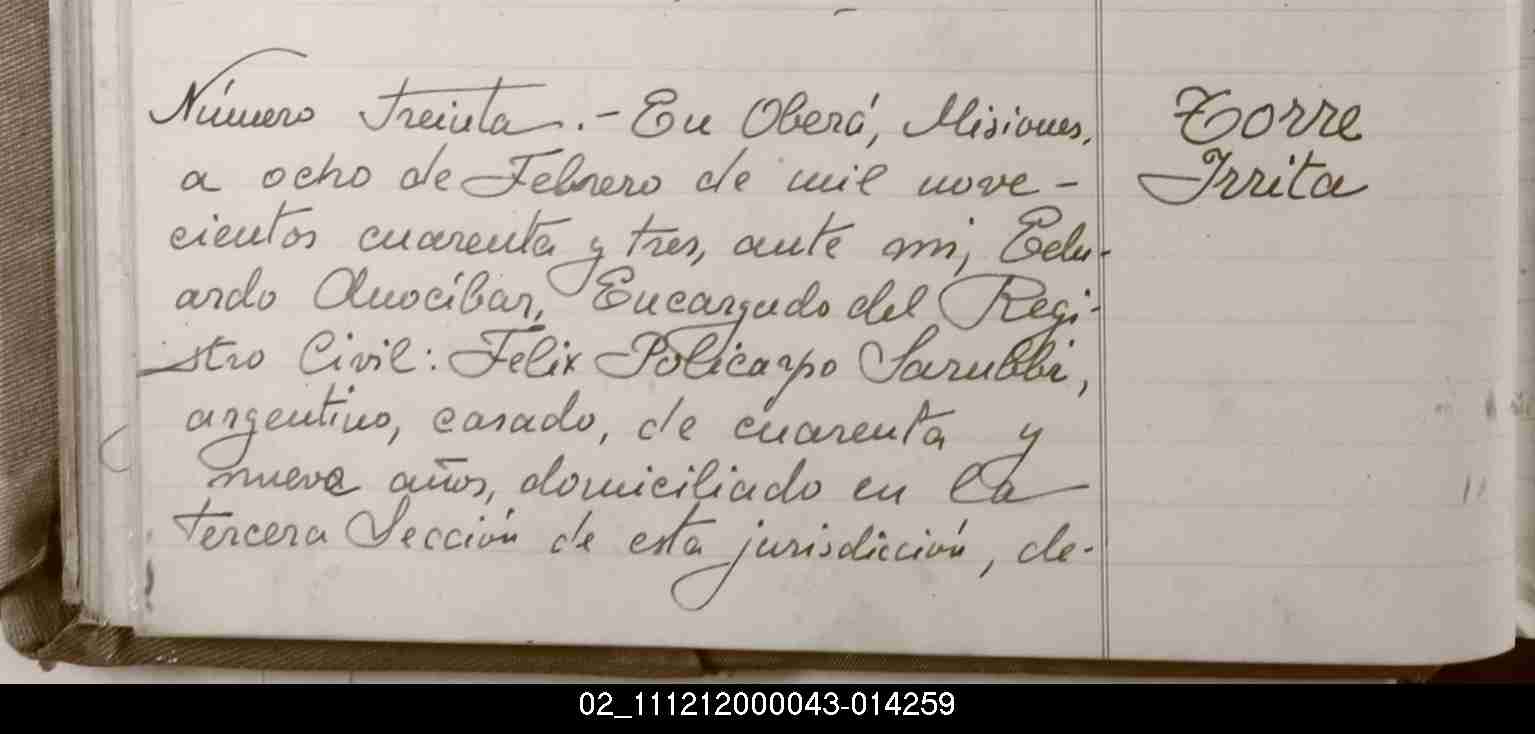 Número Treinta.- En Oberá, Misiones,
a ocho de Febrero de mil nove-
cientos cuarenta y tres, ante mi, Edu-
ardo Anocíbar, Encargado del Regi-
stro Civil: Felix Policarpo Sarubbi,
argentino, casado, de cuarenta y
nueve años, domiciliado en la
tercera Sección de esta jurisdicción, de-
Torre
Irrita
02_111212000043-014259